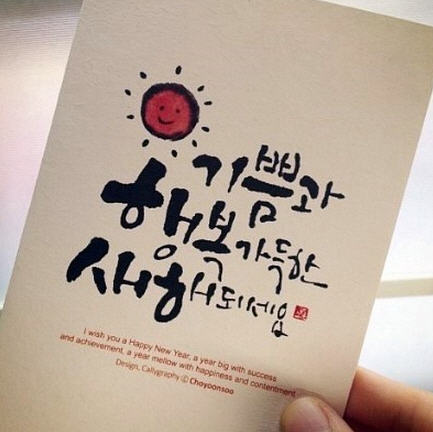 기쁨과
행복가득한
새해되세요
I wish you a Happy New Year, a year big with success
and achievement, a year mellow with happiness and contentment
Design, Callygraphy ⓒ Choyoonsoo